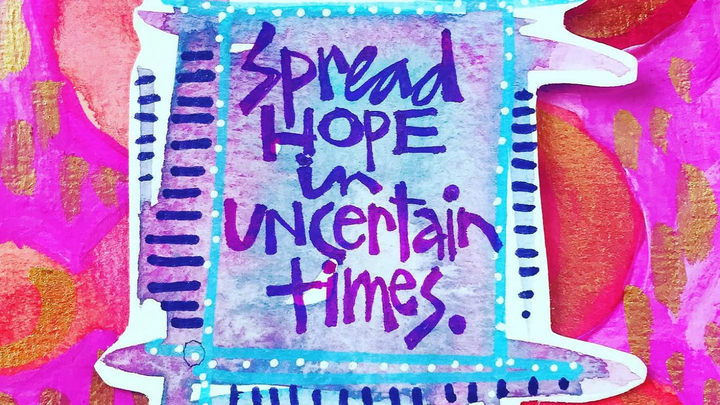 Spread
HOPE
in
UNCertaiN
times.